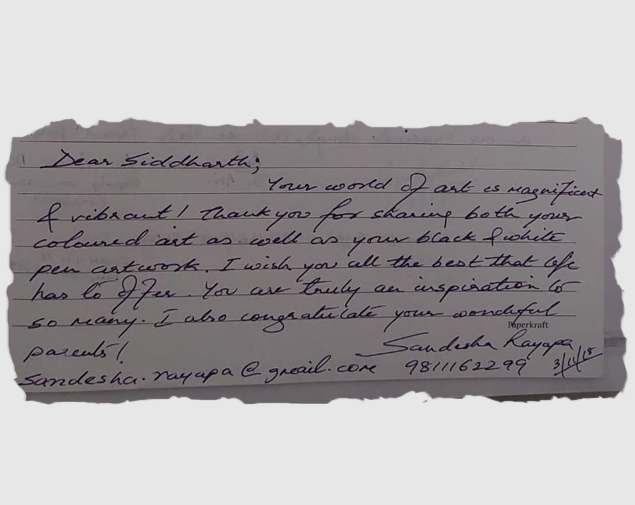 Dear Siddharth;
Your world of art is magnificent
& vibrant! Thank you for sharing both your
coloured art as well as your black & white
pen artwork. I wish you all the best that life
has to offer. You are truly an inspiration to
so many. I also congratulate your wonderful
Paperkraft
parents!
Sandesha Rayapa
sandesha.rayapa@gmail.com 9811162299 3/11/18